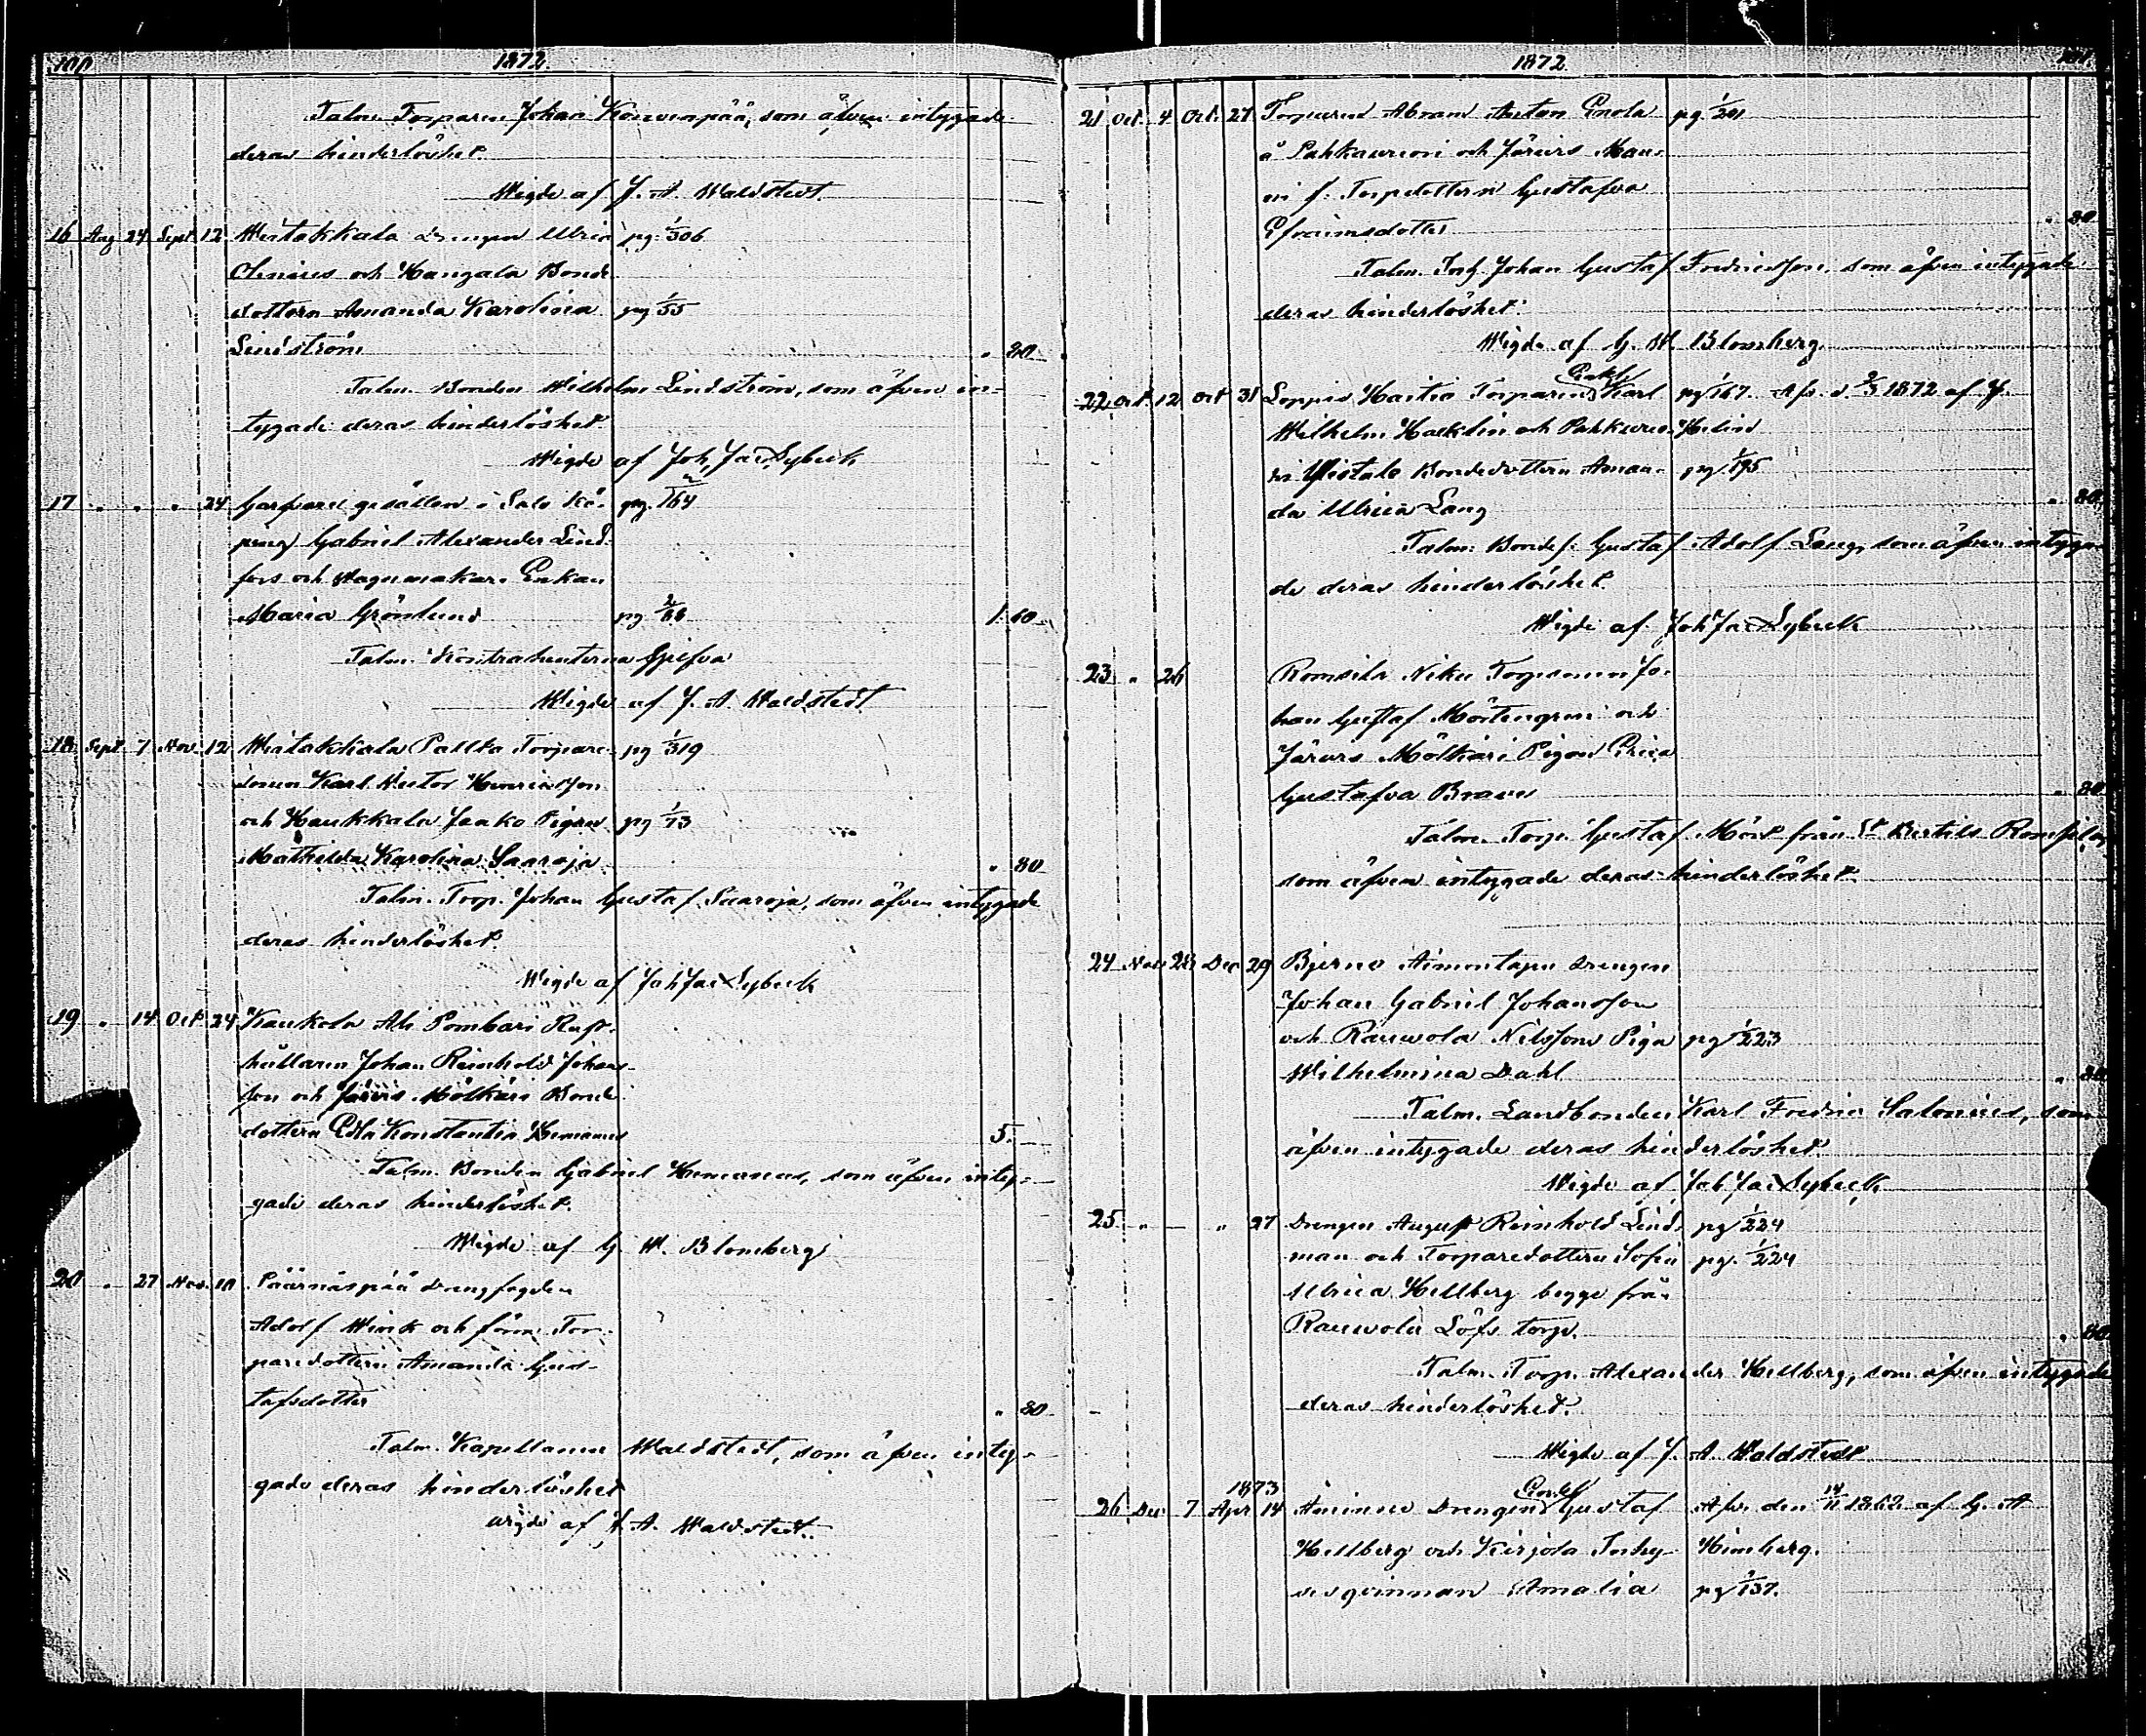 100 1872
Talm. Torparen Johan Korvenpää, som äfven intygade
deras hinderlöshet.
Wigde af J. A. Waldstedt.
16 Aug 24 Sept 12 Viitakkala drengen Ulric pg. 1/306
Clenius och Kangala Bonde
dottern Amanda Karolina pg 1/55
Lindström " 80
Talm. Bonden Wilhelm Lindström, som äfven in-
tygade deras hinderlöshet
Wigde af Joh. Jac. Lybeck
17 " " " 24 Garfvari gesällen i Salo Kö- pg. 2/164
ping Gabriel Alexander Lind-
fors och Wagnmakare Enkan
Maria Grönlund pg 2/88 1 60
Talm. Kontrahenterna Sjelfva
Wigde af J. A. Waldstedt
18 Sept 7 Nov. 12 Viitakkala Pallta Torpare- pg 1/319
sonen Karl Victor Henricsson
och Kaukkala Jaako Pigan pg 1/13
Mathilda Karolina Saaroja " 80
Talm. Torp. Johan Gustaf Saaroja, som äfven intygade
deras hinderlöshet.
Wigde af Joh Jac Lybeck
19 " 14 Oct 24 Kaukola Ali Pombari Rust-
hållaren Johan Reinhold Johans-
son och Järvis Mölkäri Bonde
dottern Edla Konstantia Hemanus 5.
Talm. Bonden Gabriel Hemanus, som äfven inty-
gade deras hinderlöshet.
Wigde af G. W. Blomberg
20 " 27 Nov. 10 Päärnäspää Drengfogden
Adolf Wink och förre Tor-
paredottern Amanda Gus-
tafsdotter " 80
Talm. Kapellanen Waldstedt, som äfven inty-
gade deras hinderlöshet
wigde af J. A. Waldstedt.
1872 101
21 Oct 4 Oct. 27 Torparen Abram Anton Enola pg. 1/201
å Pahkavuori och Järvis Man-
ni f. Torpdottern Gustafva
Efraimsdotter " 80
Talm. Torp. Johan Gustaf Fredricsson, som äfven intygade
deras hinderlöshet.
Wigde af G. W. Blomberg.
22 Oct 12 Oct 31 Loppis Haitio Torparen Enkl. Karl pg 1/167. Afv. d 2/3 1872 af J.
Wilhelm Hacklin och Pahkavuo- Helin
ri Yistalo Bondedottern Aman- pg. 1/195
da Ulrica Lang " 80
Talm. Bondes. Gustaf Adolf Lang, som äfven intyga-
de deras hinderlöshet.
Wigde af Joh Jac Lybeck
23 " 26 Romsila Niku Torpsonen Jo-
han Gustaf Mörtengren och
Järvis Mölkäri Pigan Erica
Gustafva Braun " 80
Talm. Torp. Gustaf Mört från St. Bertils Romsila,
som äfven intygade deras hinderlöshet.
24 Nov 28 Dec 29 Bjerno Aimontapu drengen
Johan Gabriel Johansson
och Rauvola Nilssons Piga pg 1/223
Wilhelmina Dahl " 80
Talm. Landbonden Karl Fredric Salonius, som
äfven intygade deras hinderlöshet.
Wigde af Joh Jac Lybeck
25 " — " 27 Drengen August Reinhold Lind- pg 1/224
man och Torparedottern Sofia pg. 1/224
Ulrica Hellberg begge från
Rauvola Löfs torp. " 80
Talm. Torp. Alexander Hellberg, som äfven intygade
deras hinderlöshet.
Wigde af J. A. Waldstedt
1873
26 Dec 7 Apr 14 Åminne Drengen Enkl. Gustaf Afv. den 14/11 1862 af G. A
Hellberg och Kirjola Inhy- Himberg.
sesqvinnan Amalia pg 1/137.